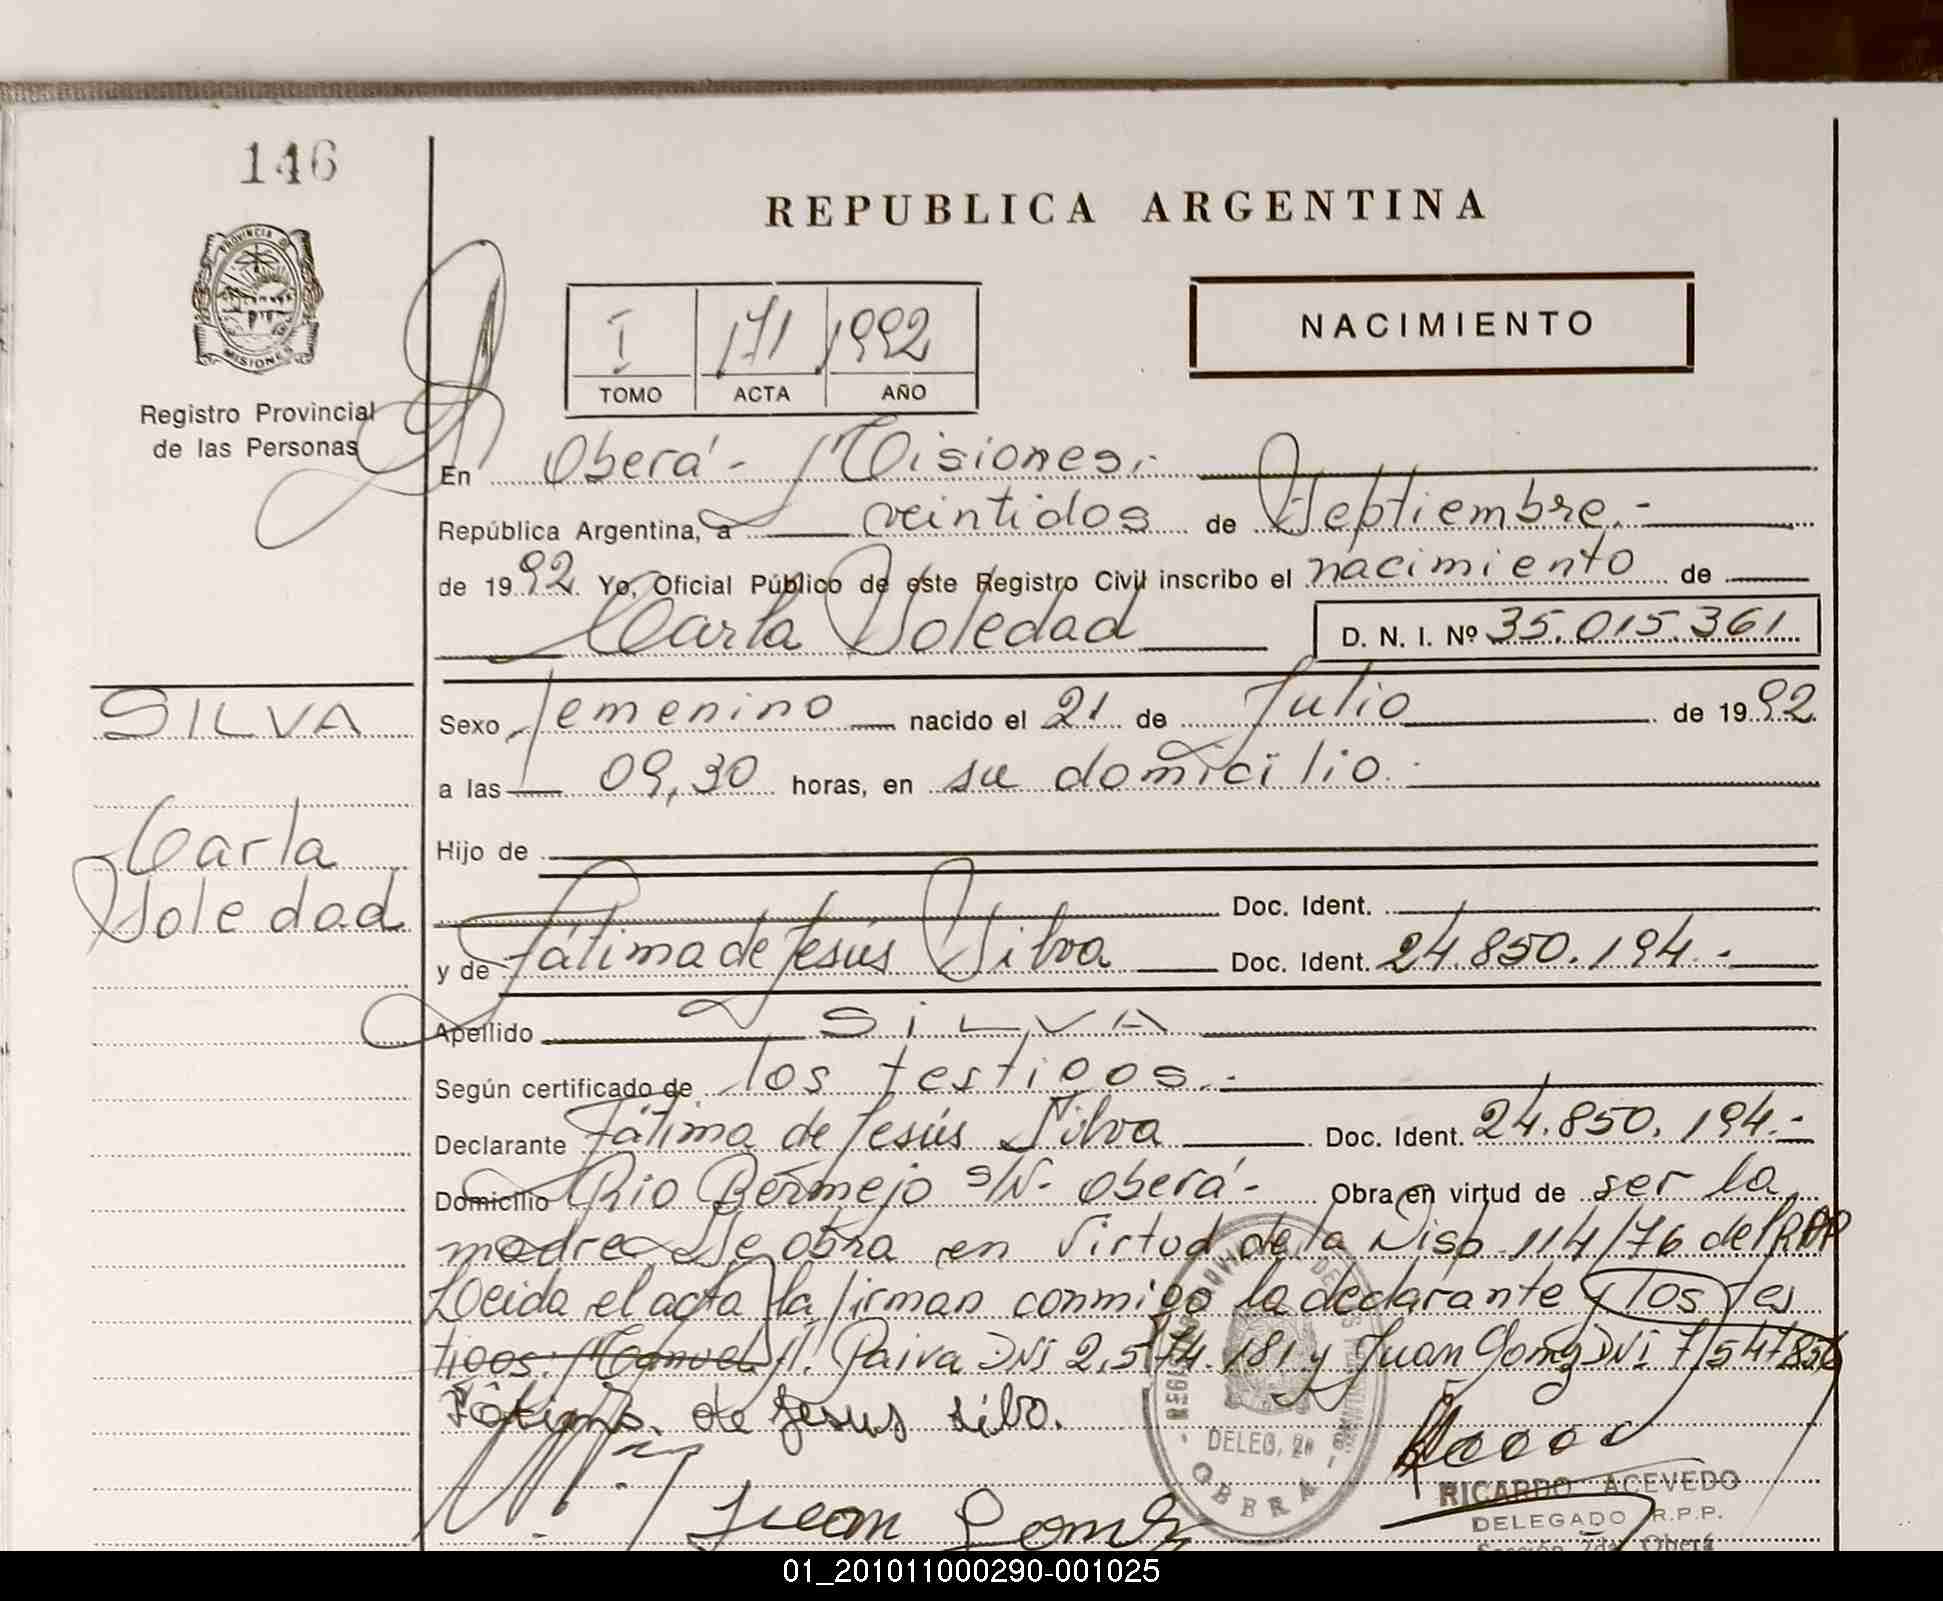 146
REPUBLICA ARGENTINA
PROVINCIA D
MISIONES
Registro Provincial
de las Personas
I 171 1992
TOMO ACTA AÑO
NACIMIENTO
En Oberá - Misiones.-
República Argentina, a veintidos de Septiembre.-
de 1992. Yo, Oficial Público de este Registro Civil inscribo el nacimiento de
Carla Soledad D. N. I. Nº 35.015.361
SILVA
Carla
Soledad
Sexo femenino nacido el 21 de Julio de 1992.
a las 09,30 horas, en su domicilio.-
Hijo de
Doc. Ident.
y de Fátima de Jesús Silva Doc. Ident. 24.850.194.-
Apellido SILVA
Según certificado de los testigos.-
Declarante Fátima de Jesús Silva Doc. Ident. 24.850.194.-
Domicilio Rio Bermejo s/N- Oberá- Obra en virtud de ser la
madre Se obra en Virtud de la Disp. 114/76 del RPP
Leida el acta la firman conmigo la declarante y los tes
tigos: Manuel Paiva DNI 2.574.181 y Juan Gomez DNI 7.547.856
Fátima de Jesus Silva.
Juan Gomez
DELEG. 2a
OBERA
RICARDO ACEVEDO
DELEGADO R.P.P.
Sección 2da. Oberá
01_201011000290-001025